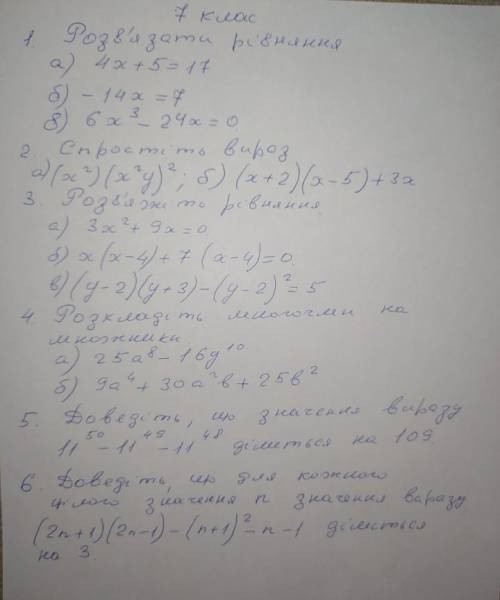 7 клас
1. Розв'язати рівняння
а) 4x+5=17
б) -14x=7
в) 6x³-24x=0
2. Спростіть вираз
а) (x²)(x²y)²; б) (x+2)(x-5)+3x
3. Розв'яжіть рівняння
а) 3x²+9x=0
б) x(x-4)+7(x-4)=0
в) (y-2)(y+3)-(y-2)²=5
4. Розкладіть многочлен на
множники
а) 25a⁸-16y¹⁰
б) 9a⁴+30a²b+25b²
5. Доведіть, що значення виразу
11⁵⁰-11⁴⁹-11⁴⁸ ділиться на 109.
6. Доведіть, що для кожного
цілого значення n значення виразу
(2n+1)(2n-1)-(n+1)²-n-1 ділиться
на 3.